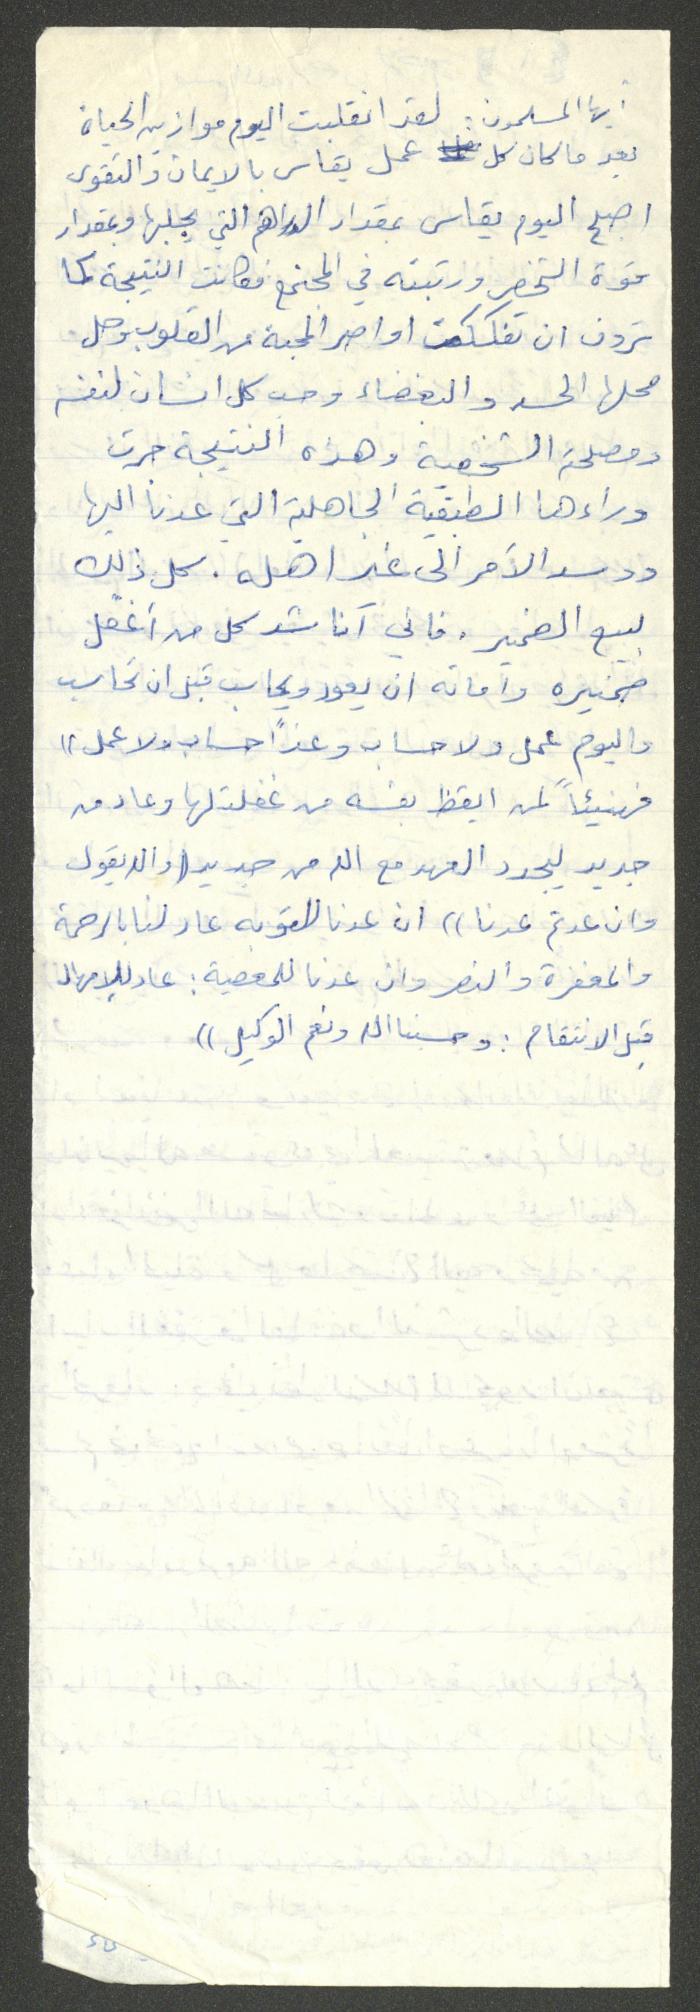 أيها المسلمون: لقد انقلبت اليوم موازين الحياة
بعد ما كان كل عمل يقاس بالايمان والتقوى
اصبح اليوم يقاس بمقدار الدراهم التي يجلبها وبمقدار
قوة الشخص ورتبته في المجتمع فكانت النتيجة كما
ترون ان تفككت اواصر المحبة من القلوب وحل
محلها الحسد والبغضاء وحب كل انسان لنفسه
ومصلحته الشخصية وهذه النتيجة جرت
وراءها الطبقية الجاهلية التي عدنا اليها
ووسد الأمر الى غير اهله. كل ذلك
لبيع الضمير. فاني أناشد كل من أغفل
ضميره وأمانه ان يعود ويحاسب قبل ان يحاسب
واليوم عمل ولا حساب وغداً حساب ولا عمل))
فهنيئاً لمن ايقظ نفسه من غفلتها وعاد من
جديد ليجدد العهد مع الله من جديد ((والله يقول
وان عدتم عدنا)) ان عدنا للتوبه عاد لنا بالرحمة
والمغفرة والنصر وان عدنا للمعصية: عاد للامهال
قبل الانتقام: وحسبنا الله ونعم الوكيل))